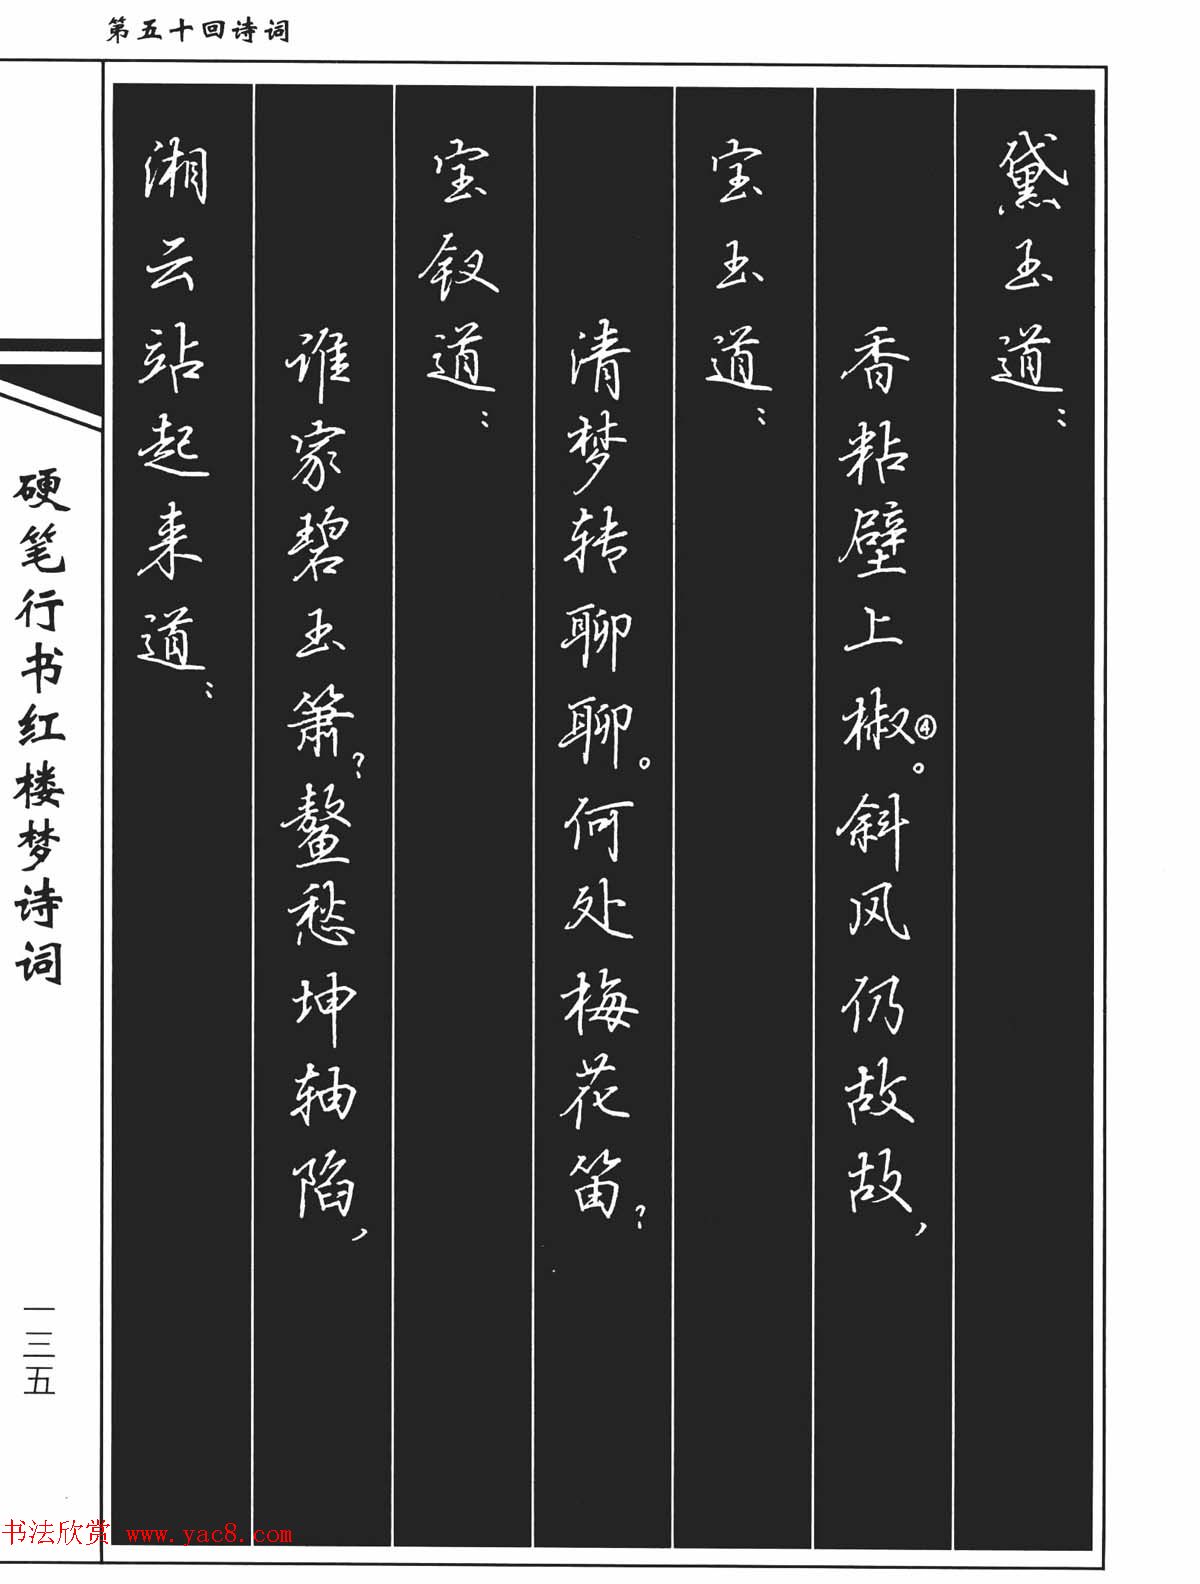 第五十回诗词
黛玉道：
香粘壁上椒④。斜风仍故故，
宝玉道：
清梦转聊聊。何处梅花笛？
宝钗道：
谁家碧玉箫？鳌愁坤轴陷，
湘云站起来道：
硬笔行书红楼梦诗词
一三五
书法欣赏 www.yac8.com